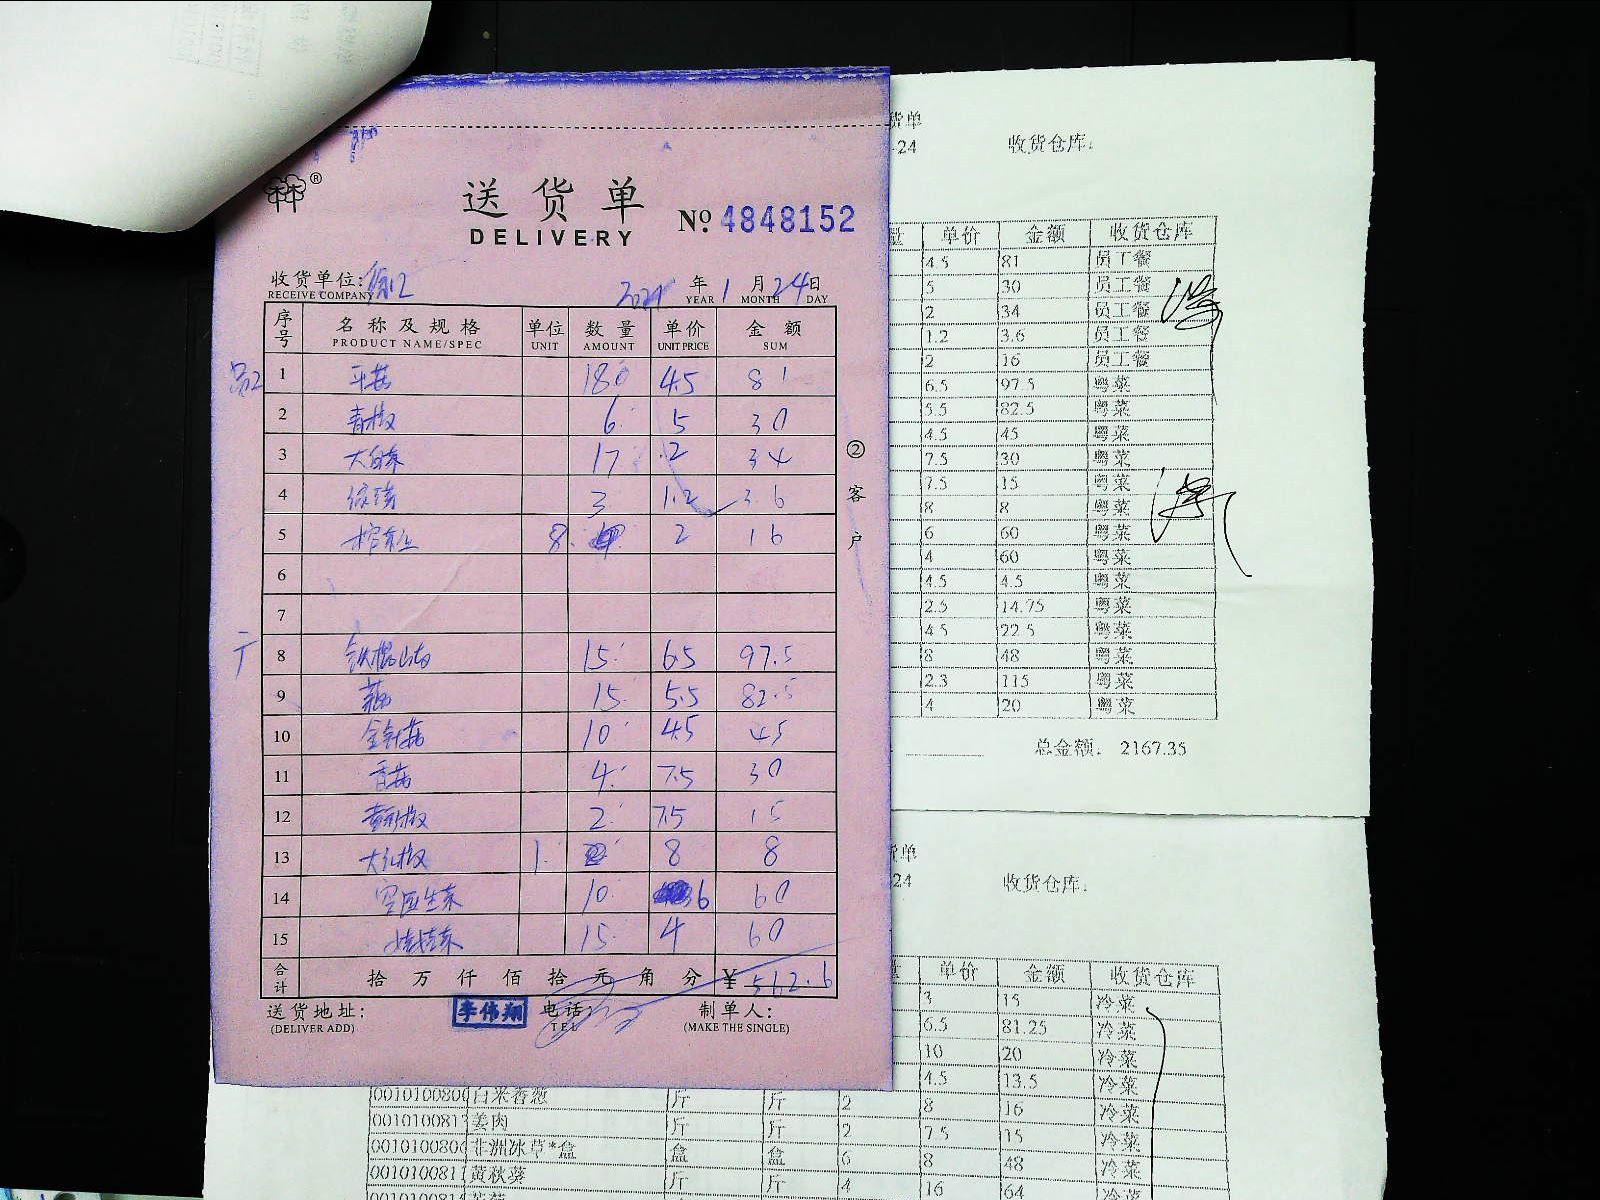 送货单
DELIVERY
№ 4848152
收货单位:
RECEIVE COMPANY
2021 年 1 月 24 日
YEAR MONTH DAY
序号 名称及规格 单位 数量 单价 金额
PRODUCT NAME/SPEC UNIT AMOUNT UNIT PRICE SUM
1 平菇 18 4.5 81
2 青椒 6 5 30
3 大白菜 17 2 34
4 3 1.2 3.6
5 8 2 16
6
7
8 铁棍山药 15 6.5 97.5
9 藕 15 5.5 82.5
10 金针菇 10 4.5 45
11 香菇 4 7.5 30
12 黄彩椒 2 7.5 15
13 大红椒 1 8 8
14 生菜 10 6 60
15 娃娃菜 15 4 60
合计 拾 万 仟 佰 拾 元 角 分 ¥ 562.6
送货地址: 李伟翔 电话: 制单人:
(DELIVER ADD) TEL (MAKE THE SINGLE)
② 客户
货单
-24 收货仓库:
量 单价 金额 收货仓库
4.5 81 员工餐
5 30 员工餐
2 34 员工餐
1.2 3.6 员工餐
2 16 员工餐
6.5 97.5 粤菜
5.5 82.5 粤菜
4.5 45 粤菜
7.5 30 粤菜
7.5 15 粤菜
8 8 粤菜
6 60 粤菜
4 60 粤菜
4.5 4.5 粤菜
2.5 14.75 粤菜
4.5 22.5 粤菜
8 48 粤菜
2.3 115 粤菜
4 20 粤菜
总金额: 2167.35
货单
24 收货仓库:
量 单价 金额 收货仓库
3 15 冷菜
6.5 81.25 冷菜
10 20 冷菜
4.5 13.5 冷菜
斤 斤 2 8 16 冷菜
姜肉 斤 斤 2 7.5 15 冷菜
非洲冰草*盒 盒 盒 6 8 48 冷菜
黄秋葵 斤 斤 4 16 64 冷菜